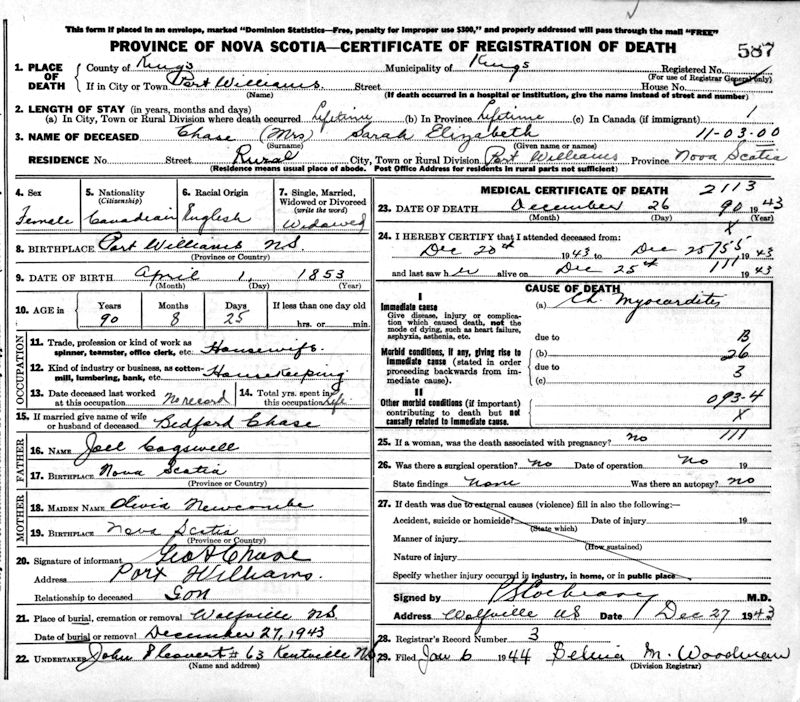 This form if placed in an envelope, marked "Dominion Statistics—Free, penalty for improper use $300," and properly addressed will pass through the mail "FREE"
PROVINCE OF NOVA SCOTIA—CERTIFICATE OF REGISTRATION OF DEATH 587
1. PLACE OF DEATH County of Kings Municipality of Kings Registered No.
(For use of Registrar General only)
If in City or Town Port Williams Street House No.
(Name) (If death occurred in a hospital or institution, give the name instead of street and number)
2. LENGTH OF STAY (in years, months and days)
(a) In City, Town or Rural Division where death occurred Lifetime (b) In Province Lifetime (c) In Canada (if immigrant) 1
3. NAME OF DECEASED Chase (Mrs) Sarah Elizabeth 11-03-00
(Surname) (Given name or names)
RESIDENCE No. Street Rural City, Town or Rural Division Port Williams Province Nova Scotia
(Residence means usual place of abode. Post Office Address for residents in rural parts not sufficient)
4. Sex Female
5. Nationality (Citizenship) Canadian
6. Racial Origin English
7. Single, Married, Widowed or Divorced (write the word) Widowed
8. BIRTHPLACE Port Williams NS
(Province or Country)
9. DATE OF BIRTH April 1, 1853
(Month) (Day) (Year)
10. AGE in Years 90 Months 8 Days 25 If less than one day old hrs. or min.
OCCUPATION
11. Trade, profession or kind of work as spinner, teamster, office clerk, etc. Housewife
12. Kind of industry or business, as cotton-mill, lumbering, bank, etc. Housekeeping
13. Date deceased last worked at this occupation No record
14. Total yrs. spent in this occupation Life
15. If married give name of wife or husband of deceased Bedford Chase
FATHER
16. NAME Joel Cogswell
17. BIRTHPLACE Nova Scotia
(Province or Country)
MOTHER
18. MAIDEN NAME Olivia Newcombe
19. BIRTHPLACE Nova Scotia
(Province or Country)
20. Signature of informant Geo A Chase
Address Port Williams.
Relationship to deceased Son
21. Place of burial, cremation or removal Wolfville NS
Date of burial or removal December 27, 1943
22. UNDERTAKER John # 63 Kentville NS
(Name and address)
MEDICAL CERTIFICATE OF DEATH 2113
23. DATE OF DEATH December 26 90 1943
(Month) (Day) (Year)
X
24. I HEREBY CERTIFY that I attended deceased from:
Dec 20th 1943 to Dec 25 755 1943
and last saw her alive on Dec 25th 111 1943
CAUSE OF DEATH
I
Immediate cause
Give disease, injury or complication which caused death, not the mode of dying, such as heart failure, asphyxia, asthenia, etc.
(a) Ch. Myocarditis
due to B
Morbid conditions, if any, giving rise to immediate cause (stated in order proceeding backwards from immediate cause).
(b) 26
due to 3
(c)
II
Other morbid conditions (if important) contributing to death but not causally related to immediate cause.
093-4
X
25. If a woman, was the death associated with pregnancy? no 111
26. Was there a surgical operation? No Date of operation No 19
State findings None Was there an autopsy? No
27. If death was due to external causes (violence) fill in also the following:—
Accident, suicide or homicide? Date of injury 19
(State which)
Manner of injury
(How sustained)
Nature of injury
Specify whether injury occurred in industry, in home, or in public place
Signed by M.D.
Address Wolfville NS Date Dec 27 1943
28. Registrar's Record Number 3
29. Filed Jan 6 1944 M. Woodman
(Division Registrar)